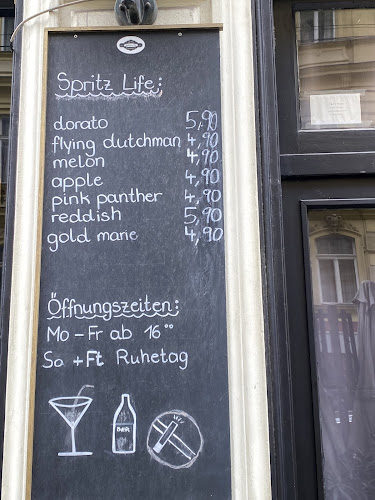 Spritz Life:
dorato 5,90
flying dutchman 4,90
melon 4,90
apple 4,90
pink panther 4,90
reddish 5,90
gold marie 4,90
Öffnungszeiten:
Mo - Fr ab 16°°
So + Ft Ruhetag